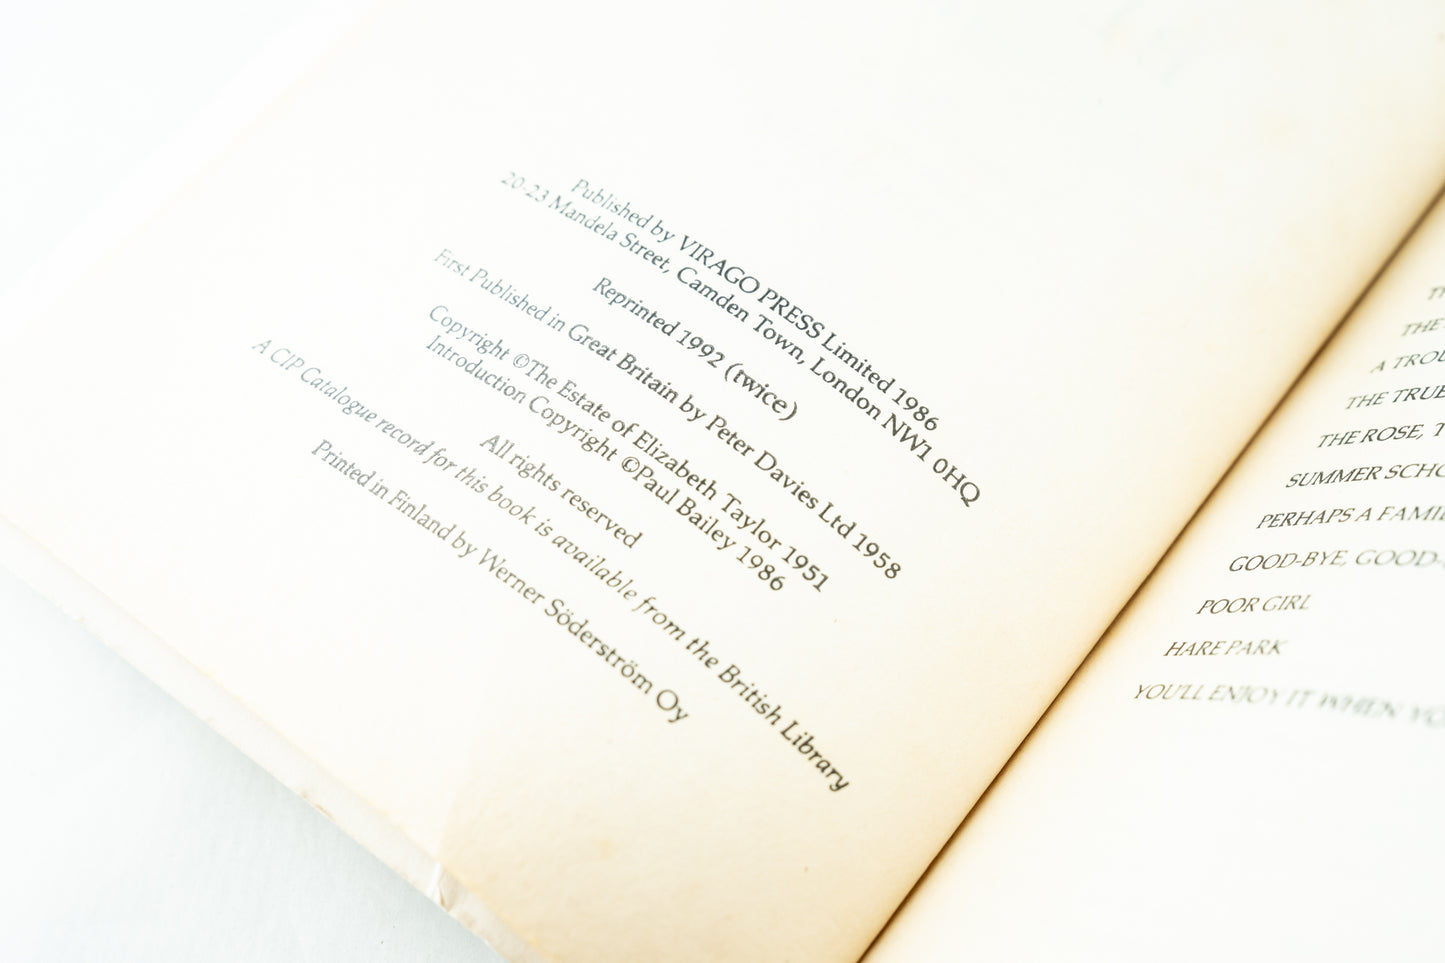 Published by VIRAGO PRESS Limited 1986
20-23 Mandela Street, Camden Town, London NW1 0HQ
Reprinted 1992 (twice)
First Published in Great Britain by Peter Davies Ltd 1958
Copyright ©The Estate of Elizabeth Taylor 1951
Introduction Copyright ©Paul Bailey 1986
All rights reserved
A CIP Catalogue record for this book is available from the British Library
Printed in Finland by Werner Söderström Oy
THE
A
THE TRUE
THE ROSE,
SUMMER
PERHAPS A
GOOD-BYE,
POOR GIRL
HARE PARK
YOU'LL ENJOY IT WHEN